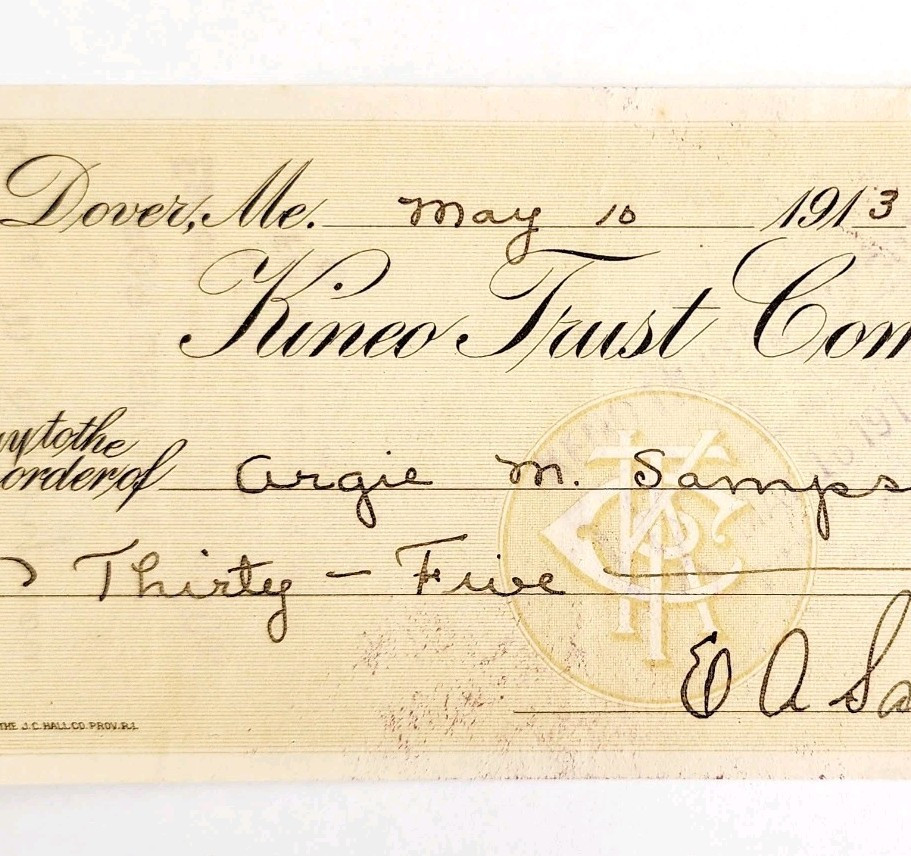 Dover, Me. May 10 1913
Kineo Trust Com
ay to the
order of Argie M. Samps
Thirty - Five
E A Sa
THE J.C. HALL CO. PROV. R.I.